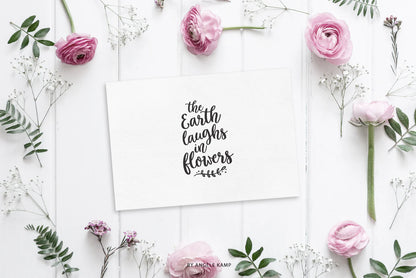 the
Earth
laughs
in
flowers
BY ANGELE KAMP